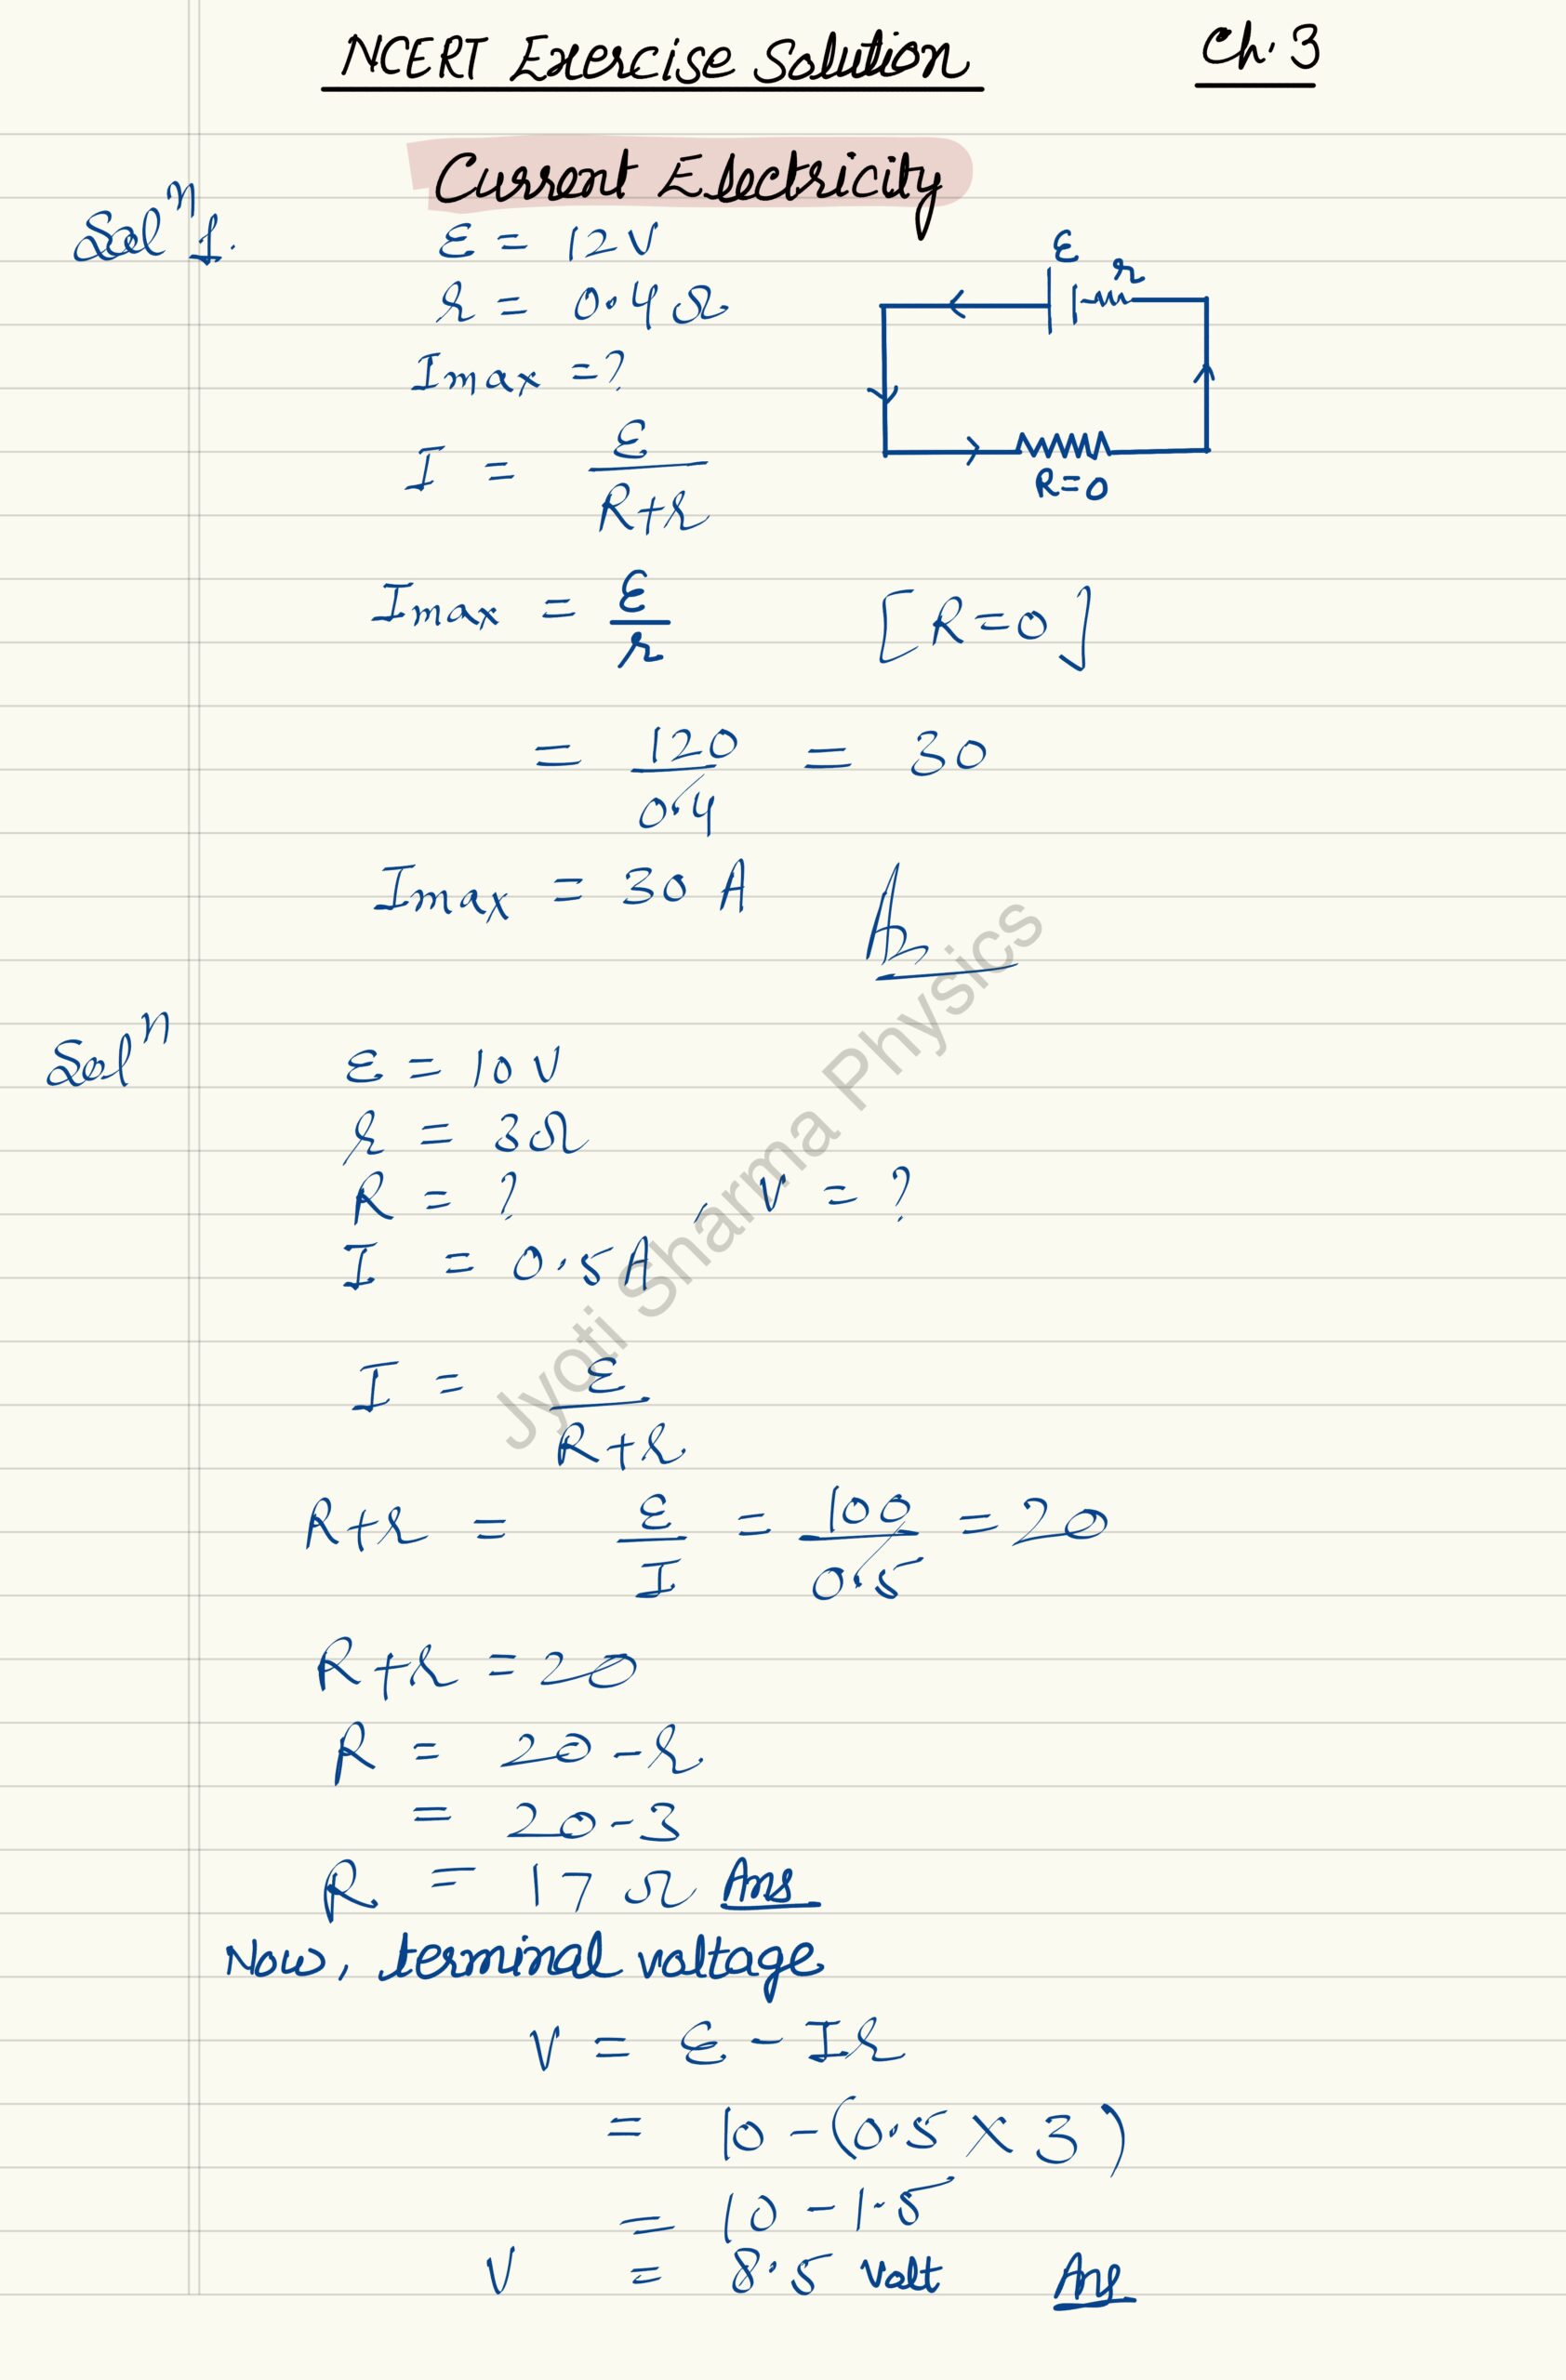 NCERT Exercise Solution Ch. 3
Current Electricity
Solⁿ 1. ε = 12V
r = 0.4 Ω
Imax = ?
I = ε / R+r
ε r
R=0
Imax = ε / r [R=0]
= 120 / 0.4 = 30
Imax = 30 A
Solⁿ ε = 10 V
r = 3Ω
R = ? , V = ?
I = 0.5 A
I = ε / R+r
R+r = ε / I = 100 / 0.5 = 20
R+r = 20
R = 20 - r
= 20 - 3
R = 17 Ω Ans
Now, terminal voltage
V = ε - Ir
= 10 - (0.5 × 3)
= 10 - 1.5
V = 8.5 Volt Ans
Jyoti Sharma Physics